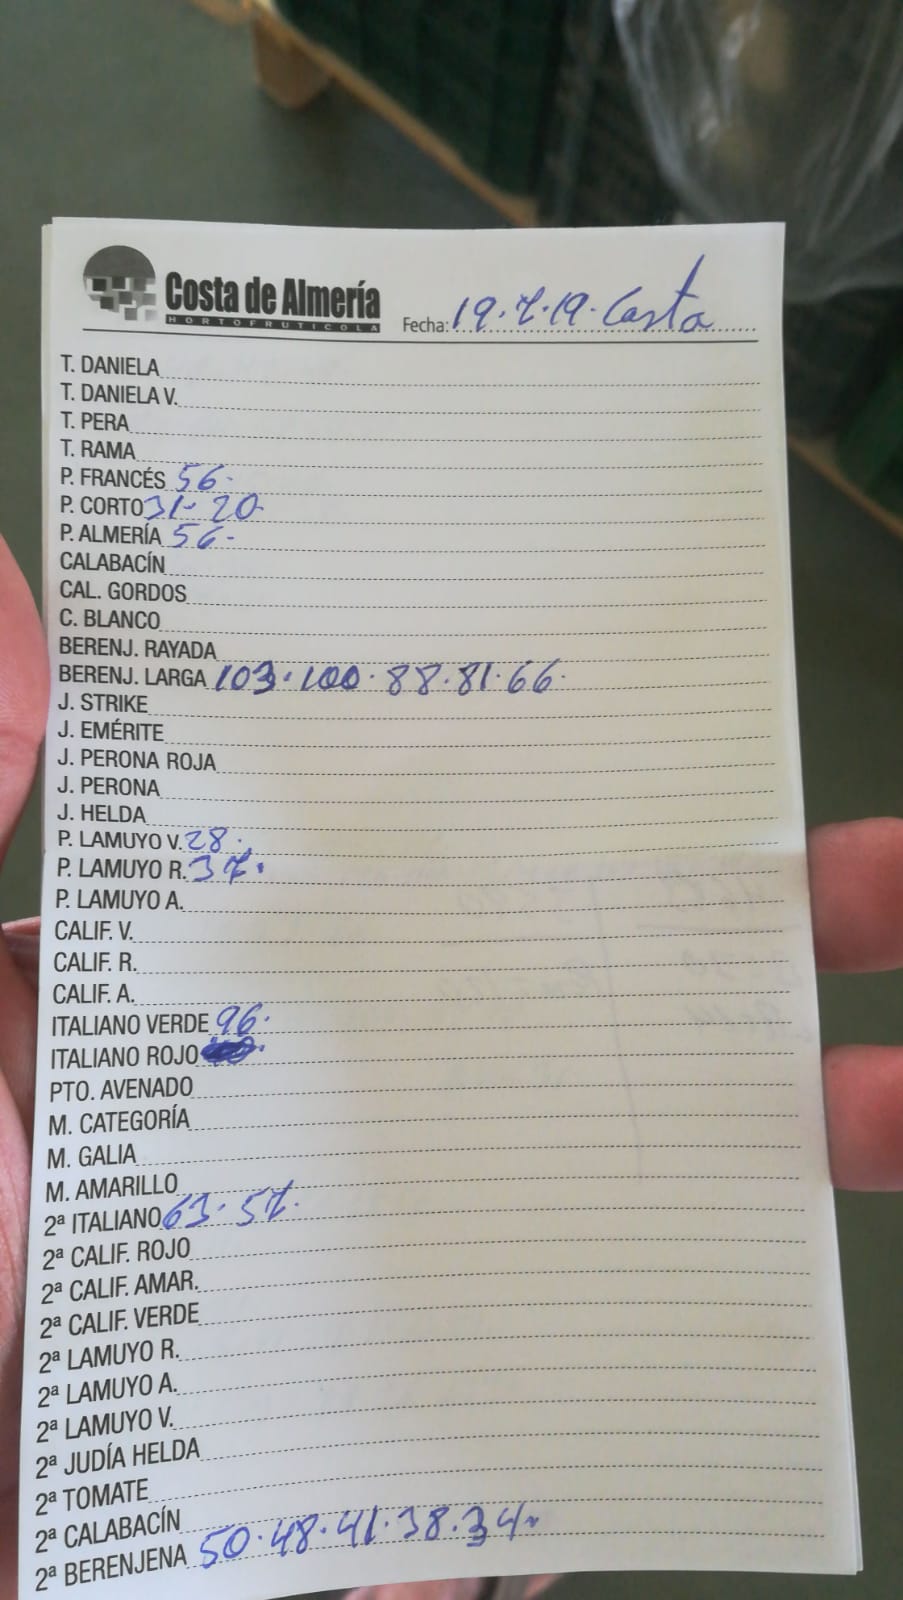 Costa de Almería
HORTOFRUTICOLA
Fecha: 19.7.19. Costa
T. DANIELA
T. DANIELA V.
T. PERA
T. RAMA
P. FRANCÉS 56.
P. CORTO 31- 20.
P. ALMERÍA 56.
CALABACÍN
CAL. GORDOS
C. BLANCO
BERENJ. RAYADA
BERENJ. LARGA 103.100.88.81.66.
J. STRIKE
J. EMÉRITE
J. PERONA ROJA
J. PERONA
J. HELDA
P. LAMUYO V. 28.
P. LAMUYO R. 37.
P. LAMUYO A.
CALIF. V.
CALIF. R.
CALIF. A.
ITALIANO VERDE 96.
ITALIANO ROJO
PTO. AVENADO
M. CATEGORÍA
M. GALIA
M. AMARILLO
2ª ITALIANO 63.57.
2ª CALIF. ROJO
2ª CALIF. AMAR.
2ª CALIF. VERDE
2ª LAMUYO R.
2ª LAMUYO A.
2ª LAMUYO V.
2ª JUDÍA HELDA
2ª TOMATE
2ª CALABACÍN
2ª BERENJENA 50.48.41.38.34.